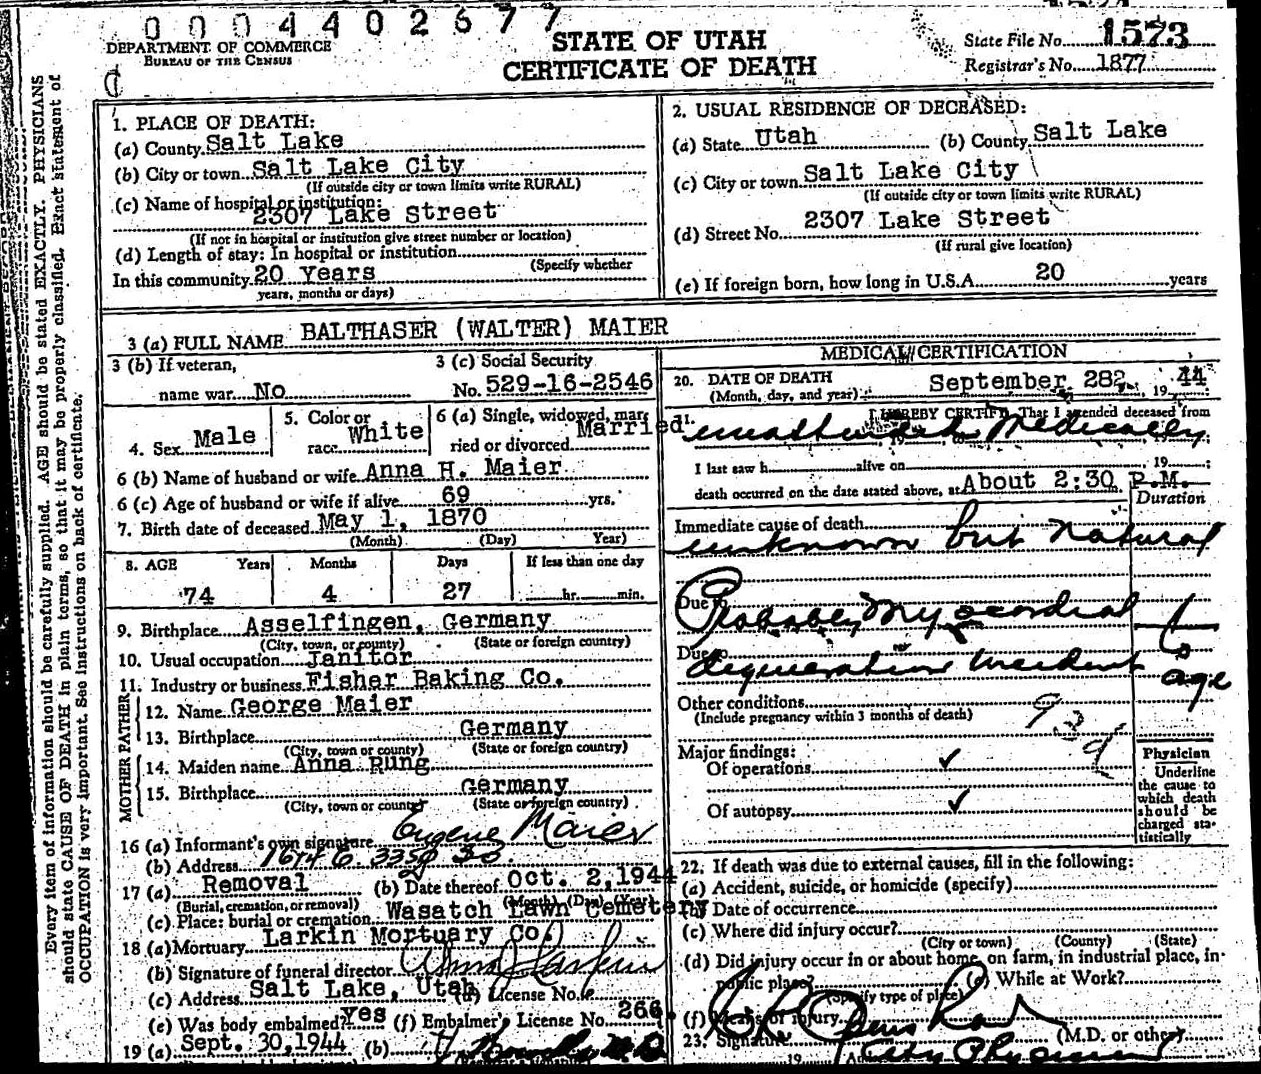 0004402677
DEPARTMENT OF COMMERCE
BUREAU OF THE CENSUS
STATE OF UTAH
CERTIFICATE OF DEATH
State File No. 1573
Registrar's No. 1877
Every item of information should be carefully supplied. AGE should be stated EXACTLY. PHYSICIANS
should state CAUSE OF DEATH in plain terms, so that it may be properly classified. Exact statement of
OCCUPATION is very important. See instructions on back of certificate.
1. PLACE OF DEATH:
(a) County Salt Lake
(b) City or town Salt Lake City
(If outside city or town limits write RURAL)
(c) Name of hospital or institution:
2307 Lake Street
(If not in hospital or institution give street number or location)
(d) Length of stay: In hospital or institution
(Specify whether
In this community 20 years
years, months or days)
2. USUAL RESIDENCE OF DECEASED:
(a) State Utah (b) County Salt Lake
(c) City or town Salt Lake City
(If outside city or town limits write RURAL)
2307 Lake Street
(d) Street No.
(If rural give location)
(e) If foreign born, how long in U.S.A. 20 years
3 (a) FULL NAME BALTHASER (WALTER) MAIER
3 (b) If veteran,
name war No
3 (c) Social Security
No. 529-16-2546
4. Sex Male
5. Color or
race White
6 (a) Single, widowed, mar-
ried or divorced Married
6 (b) Name of husband or wife Anna H. Maier
6 (c) Age of husband or wife if alive 69 yrs.
7. Birth date of deceased May 1, 1870
(Month) (Day) Year)
8. AGE Years Months Days If less than one day
74 4 27 hr. min.
9. Birthplace Asselfingen, Germany
(City, town, or county) (State or foreign country)
10. Usual occupation Janitor
11. Industry or business Fisher Baking Co.
FATHER
12. Name George Maier
13. Birthplace Germany
(City, town or county) (State or foreign country)
MOTHER
14. Maiden name Anna Rung
15. Birthplace Germany
(City, town or county) (State or foreign country)
16 (a) Informant's own signature Eugene Maier
(b) Address
17 (a) Removal (b) Date thereof Oct. 2, 1944
(Burial, cremation, or removal) (Month) (Day) (Year)
(c) Place: burial or cremation Wasatch Lawn Cemetery
18 (a) Mortuary Larkin Mortuary Co.
(b) Signature of funeral director
(c) Address Salt Lake, Utah (d) License No.
(e) Was body embalmed? yes (f) Embalmer's License No. 266.
19 (a) Sept. 30, 1944 (b)
MEDICAL CERTIFICATION
20. DATE OF DEATH
(Month, day, and year) September 28, 1944
21. I HEREBY CERTIFY, That I attended deceased from
unattended Medically
I last saw h alive on 19 ;
death occurred on the date stated above, at About 2:30 P.M.
Duration
Immediate cause of death
unknown but natural
Due to Probably Myocardial
Due to degeneration incident to age
Other conditions
(Include pregnancy within 3 months of death)
93d
Major findings:
Of operations ✓
Of autopsy ✓
Physician
Underline
the cause to
which death
should be
charged sta-
tistically
22. If death was due to external causes, fill in the following:
(a) Accident, suicide, or homicide (specify)
(b) Date of occurrence
(c) Where did injury occur?
(City or town) (County) (State)
(d) Did injury occur in or about home, on farm, in industrial place, in
public place? (e) While at Work?
(Specify type of place)
(f) Means of injury
23. Signature (M.D. or other)
City Physician